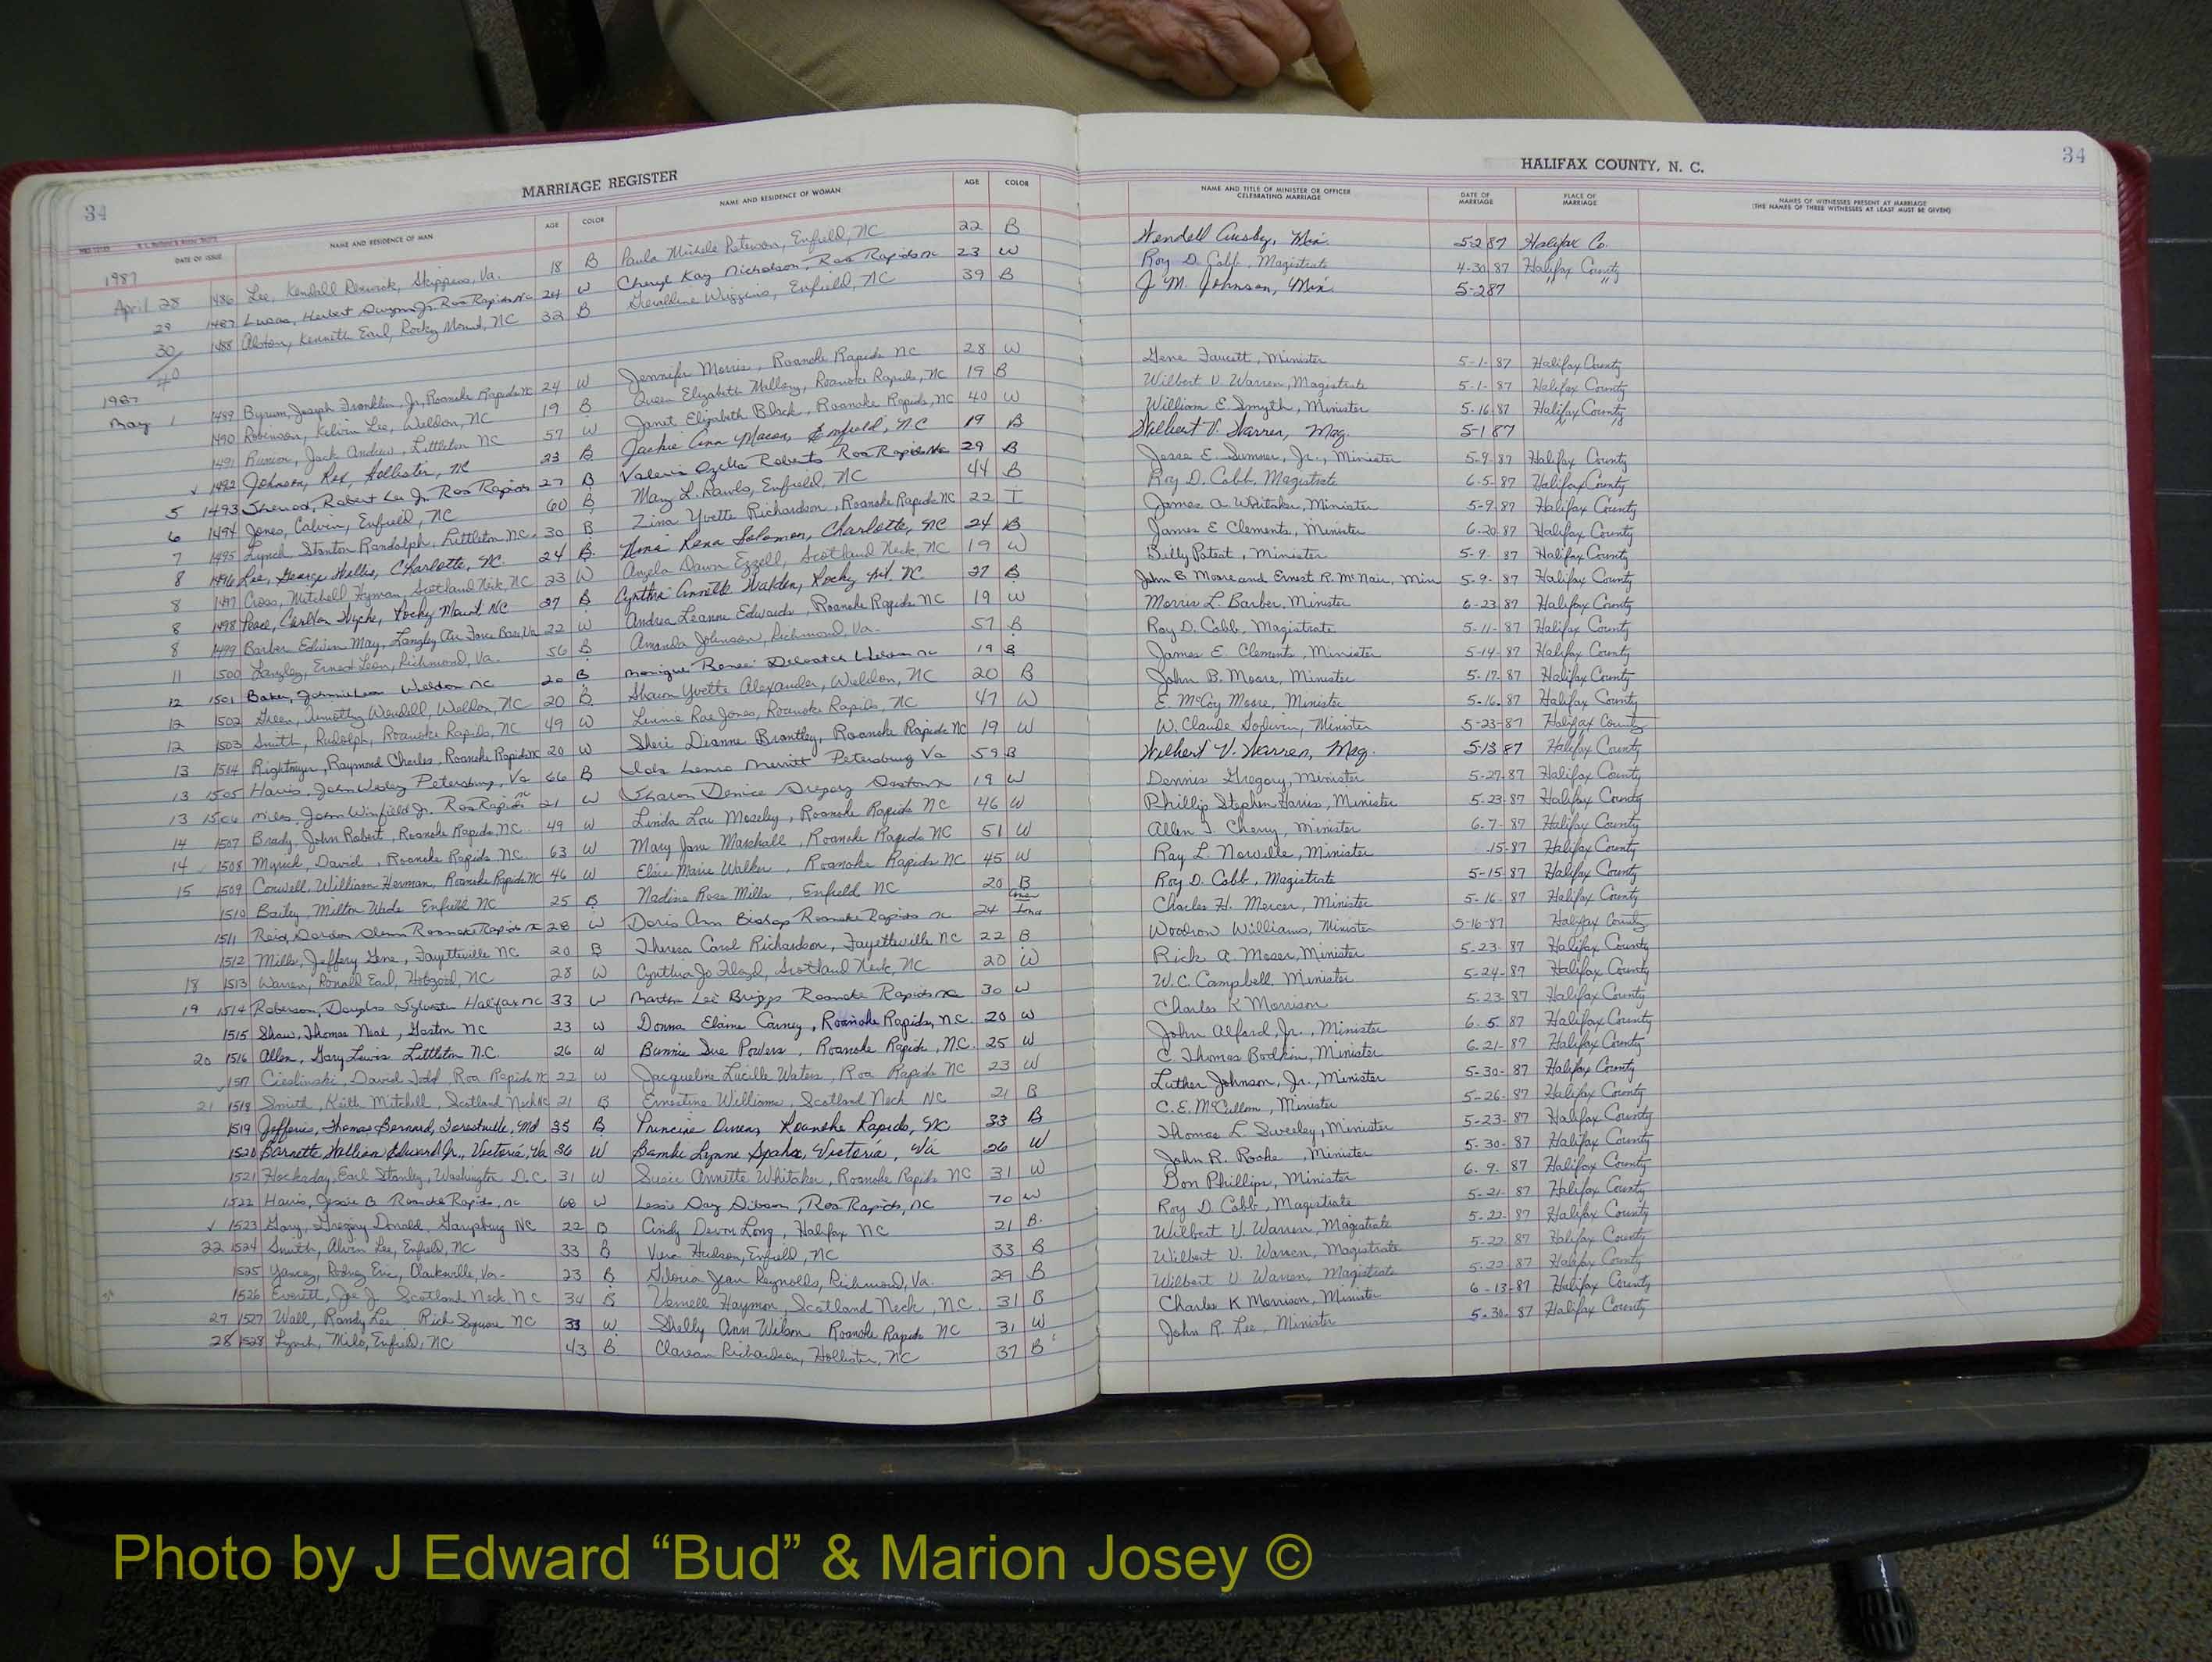 34
MARRIAGE REGISTER
HALIFAX COUNTY, N. C.
34
DATE OF ISSUE NAME AND RESIDENCE OF MAN AGE COLOR NAME AND RESIDENCE OF WOMAN AGE COLOR NAME AND TITLE OF MINISTER OR OFFICER CELEBRATING MARRIAGE DATE OF MARRIAGE PLACE OF MARRIAGE NAMES OF WITNESSES PRESENT AT MARRIAGE (THE NAMES OF THREE WITNESSES AT LEAST MUST BE GIVEN)
1987
April 28 1486 Lee, Kendall Skippers, Va. 18 B Paula Michele Enfield, NC 22 B Wendell Ausby, Min. 5 2 87 Halifax Co.
29 1487 Lucas, Herbert Jr. Roa Rapids NC 24 W Cheryl Kay Nicholson, Roa Rapids NC 23 W Roy D. Cobb, Magistrate 4-30 87 Halifax County
30 1488 Alston, Kenneth Earl, Rocky Mount, NC 32 B Geraldine Wiggins, Enfield, NC 39 B J. M. Johnson, Min. 5-2 87 " "
40
1987
May 1 1489 Byrum, Joseph Franklin, Jr, Roanoke Rapids NC 24 W Jennifer Morris, Roanoke Rapids NC 28 W Gene Faucett, Minister 5-1-87 Halifax County
1490 Robinson, Kelvin Lee, Weldon, NC 19 B Queen Elizabeth Mallory, Roanoke Rapids, NC 19 B Wilbert V. Warren, Magistrate 5-1-87 Halifax County
1491 Runion, Jack Andrew, Littleton NC 57 W Janet Elizabeth Black, Roanoke Rapids, NC 40 W William E. Smyth, Minister 5-16 87 Halifax County
1492 Johnson, Rex, Hollister, NC 23 B Jackie Ann Macon, Enfield, NC 19 B Wilbert V. Warren, Mag. 5-1 87 " "
5 1493 Sherrod, Robert Lee Jr. Roa Rapids 27 B Valerie Roberts Roa Rapids NC 29 B Jesse E. Sumner, Jr., Minister 5-9 87 Halifax County
6 1494 Jones, Calvin, Enfield, NC 60 B Mary L. Rawls, Enfield, NC 44 B Roy D. Cobb, Magistrate 6-5-87 Halifax County
7 1495 Lynch Stanton Randolph, Littleton, NC. 30 B Zina Yvette Richardson, Roanoke Rapids NC 22 I James A. Whitaker, Minister 5-9 87 Halifax County
8 1496 Lee, George Charlotte, NC. 24 B. Nina Rena Solomon, Charlotte, NC 24 B James E Clements, Minister 6-20 87 Halifax County
8 1497 Cross, Mitchell Hyman, Scotland Neck, NC 23 W Angela Dawn Ezzell, Scotland Neck, NC 19 W Billy Poteat, Minister 5-9. 87 Halifax County
8 1498 Peace, Carlton Wyche, Rocky Mount NC 27 B Cynthia Annette Walden, Rocky Mt, NC. 27 B John B. Moore and Ernest R. McNair, Min 5-9-87 Halifax County
8 1499 Barber Edwin May, Langley Air Force Base, Va 22 W Andrea Leanne Edwards, Roanoke Rapids NC 19 W Morris L. Barber, Minister 6-23 87 Halifax County
11 1500 Langley, Ernest Leon, Richmond, Va. 56 B Amanda Johnson, Richmond, Va. 57 B Roy D. Cobb, Magistrate 5-11-87 Halifax County
12 1501 Baker, Weldon NC 20 B Monique Renee Weldon NC 19 B James E. Clements, Minister 5-14-87 Halifax County
12 1502 Green, Timothy Wendell, Weldon, NC 20 B. Sharon Yvette Alexander, Weldon, NC 20 B John B. Moore, Minister 5-17-87 Halifax County
12 1503 Smith, Rudolph, Roanoke Rapids, NC 49 W Linnie Rae Jones, Roanoke Rapids, NC 47 W E. McCoy Moore, Minister 5-16-87 Halifax County
13 1504 Rightmyer, Raymond Charles, Roanoke Rapids NC 20 W Sheri Dianne Brantley, Roanoke Rapids NC 19 W W. Claude Godwin, Minister 5-23-87 Halifax County
13 1505 Harris, John Wesley Petersburg, Va 66 B Merritt Petersburg Va 59 B Wilbert V. Warren, Mag. 5-13 87 Halifax County
13 1506 Miles, John Winfield Jr. Roa Rapids NC 21 W Sharon Denice Gregory Gaston NC 19 W Dennis Gregory, Minister 5-27-87 Halifax County
14 1507 Brady, John Robert, Roanoke Rapids, NC. 49 W Linda Lou Moseley, Roanoke Rapids NC 46 W Phillip Stephen Harris, Minister 5-23-87 Halifax County
14 1508 Myrick, David, Roanoke Rapids NC. 63 W Mary Jane Marshall, Roanoke Rapids NC 51 W Allen T Cherry, Minister 6-7-87 Halifax County
15 1509 Conwell, William Herman, Roanoke Rapids NC 46 W Marie Walker, Roanoke Rapids NC 45 W Ray L. Norville, Minister 15-87 Halifax County
1510 Bailey, Milton Wade Enfield NC 25 B Nadine Rose Mills, Enfield NC 20 B Roy D. Cobb, Magistrate 5-15-87 Halifax County
1511 Reid, Gordon Glenn Roanoke Rapids NC 28 W Doris Ann Bishop Roanoke Rapids NC 24 Ind Charles H. Mercer, Minister 5-16-87 Halifax County
1512 Mills, Jeffery Gene, Fayetteville NC 20 B Theresa Carol Richardson, Fayetteville NC 22 B Woodrow Williams, Minister 5-16-87 Halifax County
18 1513 Warren, Ronald Earl, Hobgood, NC 28 W Cynthia Jo Floyd, Scotland Neck, NC 20 W Rick A. Moser, Minister 5-23-87 Halifax County
19 1514 Roberson, Douglas Sylvester Halifax NC 33 W Martha Lee Briggs Roanoke Rapids NC 30 W W.C. Campbell, Minister 5-24-87 Halifax County
1515 Shaw, Thomas Neal, Gaston NC 23 W Donna Elaine Carney, Roanoke Rapids, NC. 20 W Charles K Morrison 5-23-87 Halifax County
20 1516 Allen, Gary Lewis Littleton N.C. 26 W Bunnie Sue Powers, Roanoke Rapids, N.C. 25 W John Alford, Jr., Minister 6. 5. 87 Halifax County
1517 Cieslinski, David Todd, Roa Rapids NC 22 W Jacqueline Lucille Waters, Roa Rapids NC 23 W C. Thomas Bodkin, Minister 6-21-87 Halifax County
21 1518 Smith, Keith Mitchell, Scotland Neck NC 21 B Ernestine Williams, Scotland Neck NC 21 B Luther Johnson, Jr., Minister 5-30-87 Halifax County
1519 Jefferies, Thomas Bernard, Forestville, Md 35 B Princine Owens Roanoke Rapids, NC 33 B C. E. McCullom, Minister 5-26-87 Halifax County
1520 Barnette William Edward Jr., Victoria, Va 36 W Lynne Victoria, Va 26 W Thomas L Sweeley, Minister 5-23-87 Halifax County
1521 Hocksday, Earl Stanley, Washington D.C. 31 W Susie Annette Whitaker, Roanoke Rapids NC 31 W John R. Rooke, Minister 5-30-87 Halifax County
1522 Harris, Jessie B Roanoke Rapids, NC 68 W Lessie Day Roa Rapids, NC 70 W Don Phillips, Minister 6. 9. 87 Halifax County
1523 Gary, Gregory Donald, Garysburg NC 22 B Cindy Devon Long, Halifax NC 21 B. Roy D. Cobb, Magistrate 5-21-87 Halifax County
22 1524 Smith, Alvin Lee, Enfield, NC 33 B Vera Hudson, Enfield, NC 33 B Wilbert V. Warren, Magistrate 5-22-87 Halifax County
1525 Yancey, Rodney Eric, Clarksville, Va- 23 B Gloria Jean Reynolds, Richmond, Va. 29 B Wilbert V. Warren, Magistrate 5-22 87 Halifax County
1526 Everett, Joe J. Scotland Neck, NC 34 B Vernell Haymon, Scotland Neck, NC. 31 B Wilbert V Warren, Magistrate 5-22 87 Halifax County
27 1527 Wall, Randy Lee Rich Square NC 33 W. Shelly Ann Wilson Roanoke Rapids NC 31 W Charles K Morrison, Minister 6-13-87 Halifax County
28 1528 Lynch, Milo, Enfield, NC 43 B Richardson, Hollister, NC 37 B John R. Lee, Minister 5-30-87 Halifax County
Photo by J Edward “Bud” & Marion Josey ©